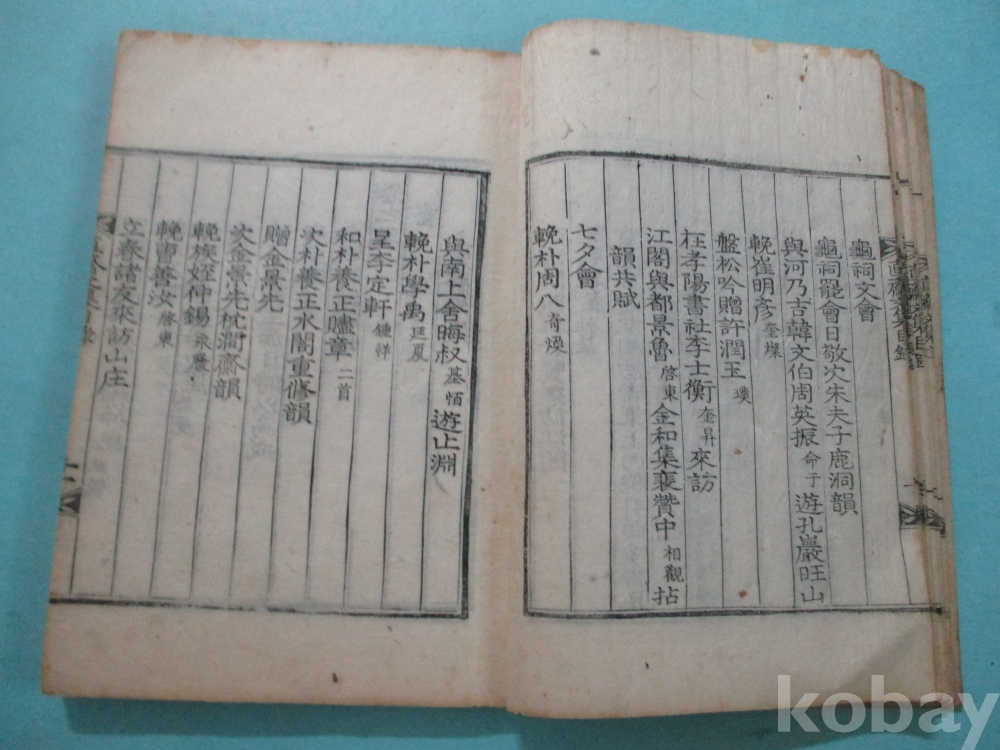 龜祠文會
龜祠罷會日敬次朱夫子鹿洞韻
與河乃吉韓文伯周英振命于遊孔巖旺山
輓崔明彦奎燦
盤松吟贈許潤玉璞
枉孝陽書社李士衡奎昇來訪
江閣與都景魯啓東金和集裵贊中相觀拈
韻共賦
七夕會
輓朴周八奇煥
與南上舍晦叔基恒遊止淵
輓朴學禹廷夏
呈李定軒鍾祥
和朴養正矑章二首
次朴養正水閣重修韻
贈金景先
次金景先枕澗齋韻
輓族姪仲錫永
輓曺善汝啓東
立春諸友來訪山庄
kobay